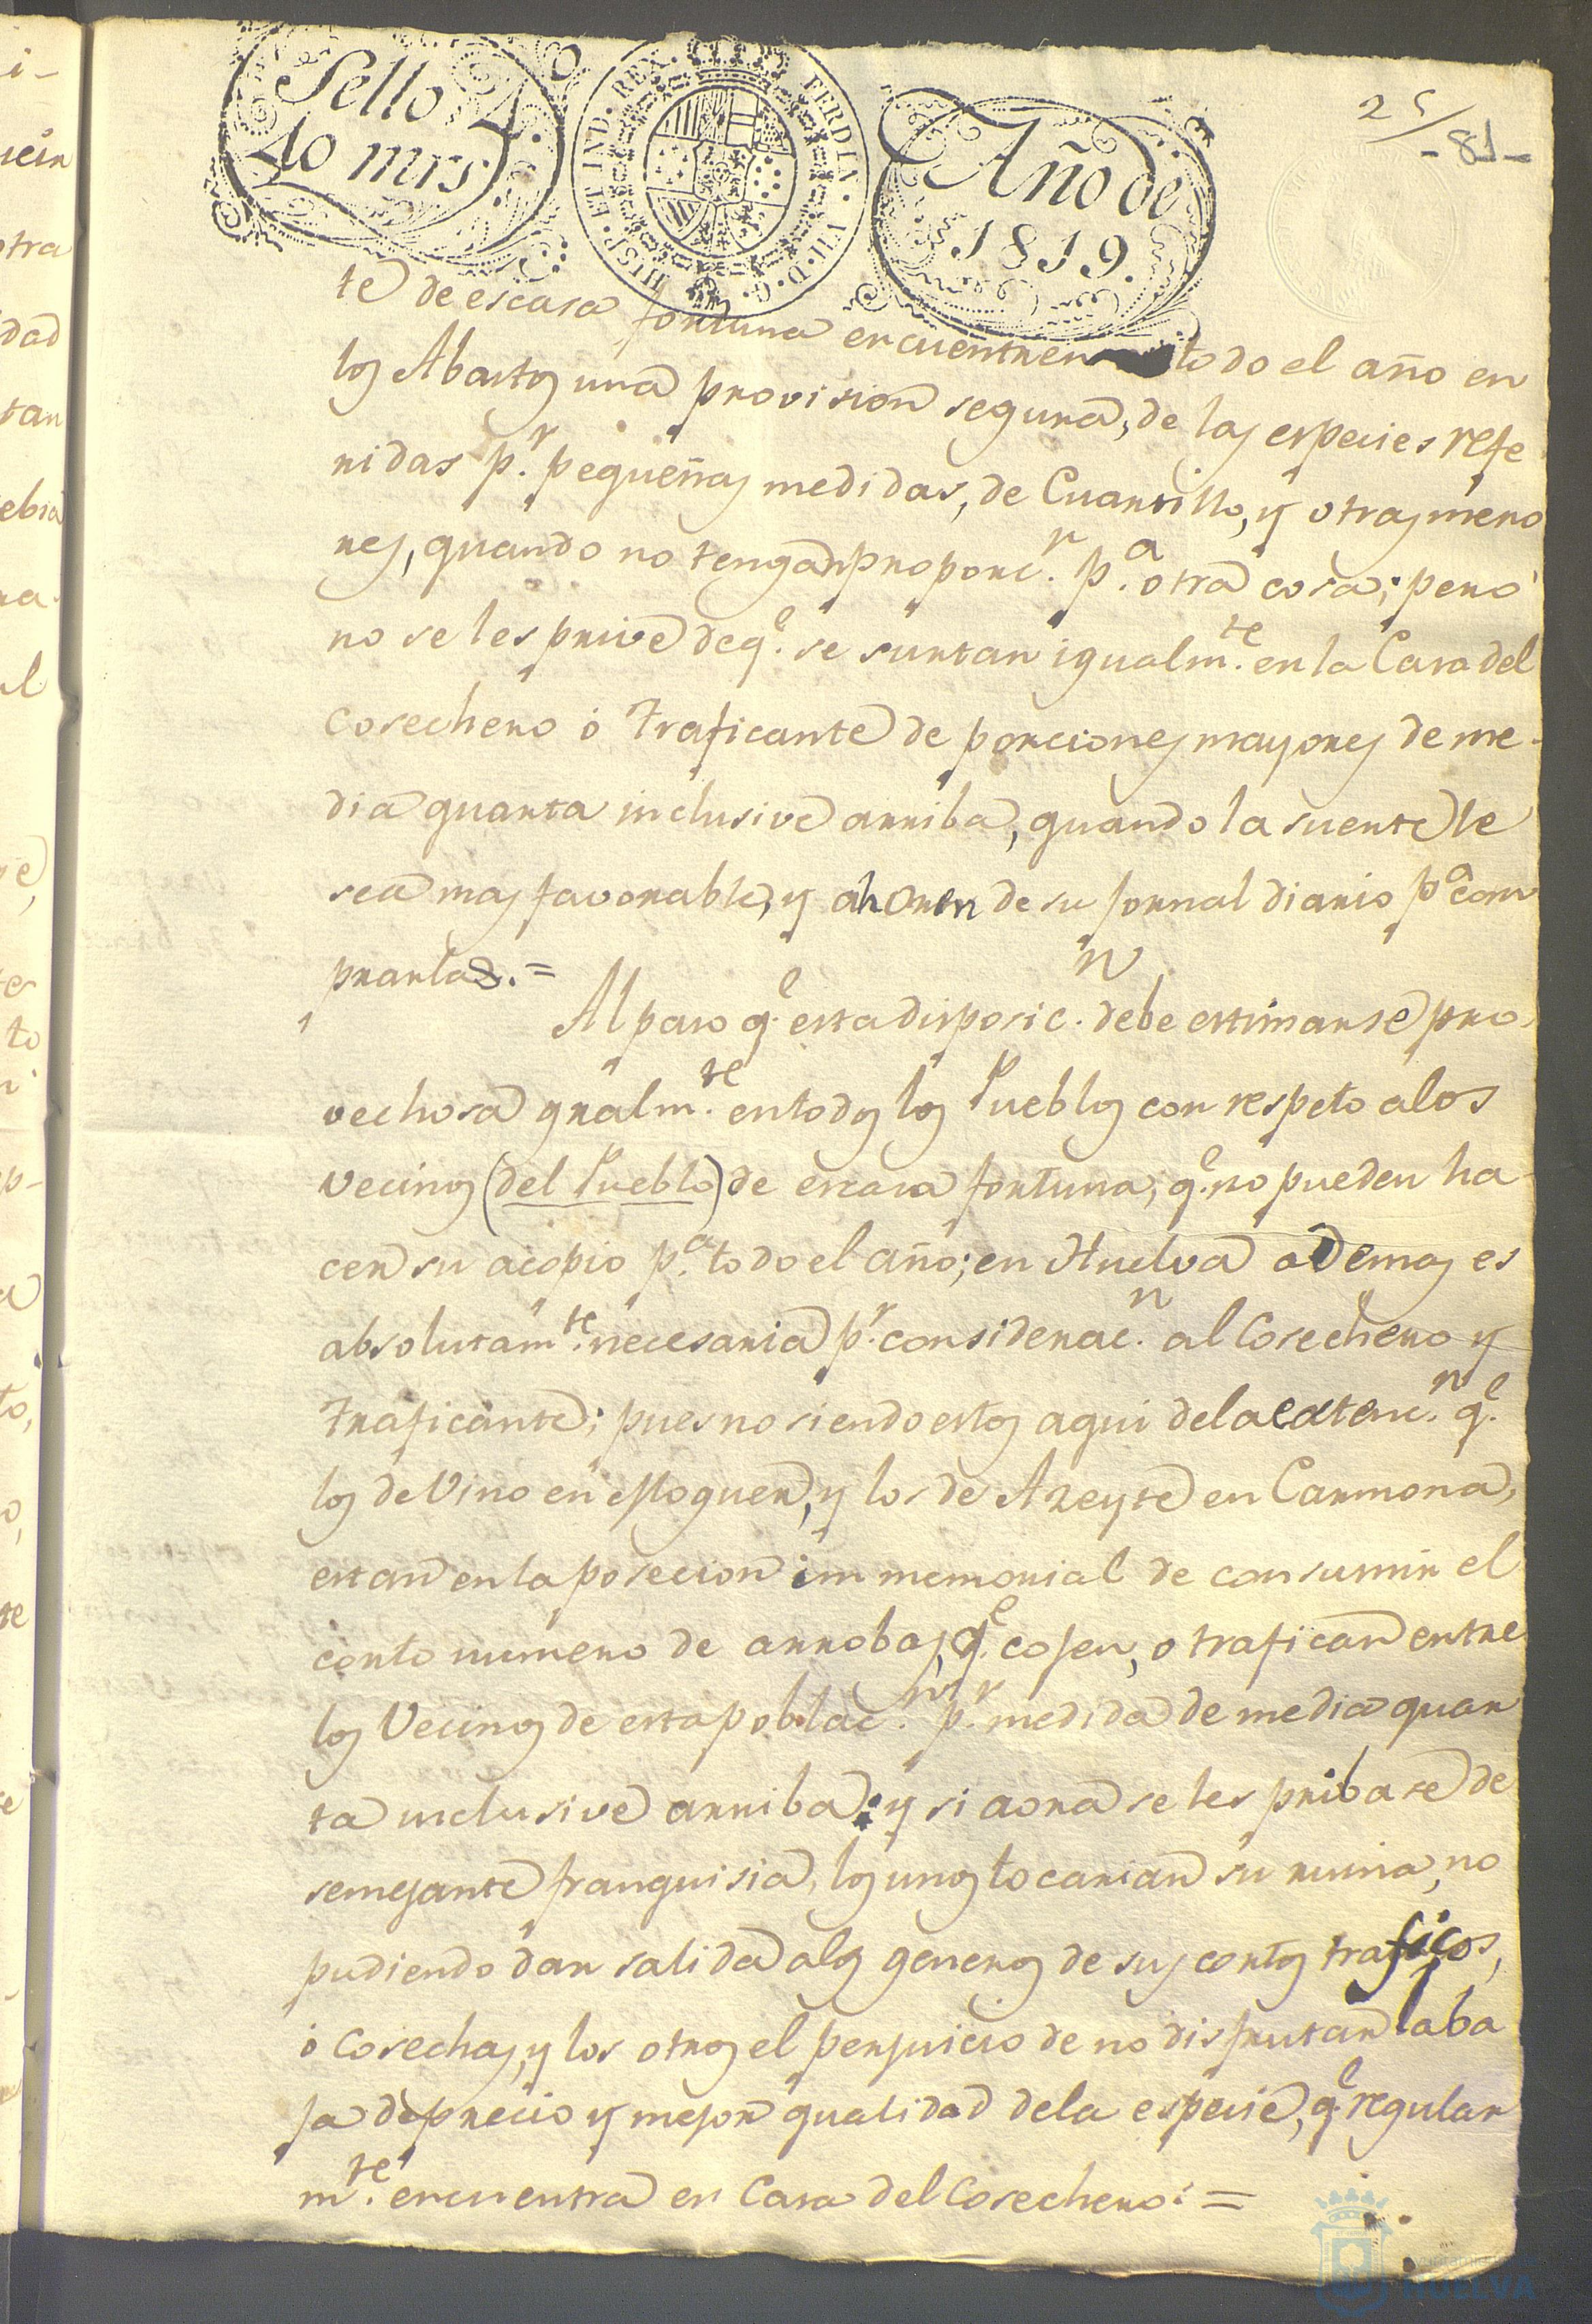 Sello 4.
40 mrs
HISP. ET IND. REX. FERDIN. VII. D. G.
Año de
1819.
25
-81-
te de escasa fortuna encuentren todo el año en
los Abastos una provision segura, de las especies refe
ridas p.r pequeñas medidas, de Cuartillo, y otras meno
res, quando no tengan proporc.n p.a otra cosa; pero
no se les prive de q.e se surtan igualm.te en la Casa del
Cosechero ó Traficante de porciones mayores de me-
dia quarta inclusive arriba, quando la suerte le
sea mas favorable, y ahorren de su jornal diario p.a com
prarlas. =
Al paso q.e esta disposic.n debe estimarse pro-
vechosa gralm.te en todos los Pueblos con respeto a los
Vecinos (del Pueblo) de escasa fortuna, q.e no pueden ha
cer su acopio p.a todo el año; en Huelva ademas es
absolutam.te necesaria p.r considerac.n al Cosechero y
Traficante; pues no siendo estos aqui de la extenc.n q.e
los de Vino en Moguer, y los de Azeyte en Carmona,
estan en la posecion immemorial de consumir el
corto numero de arrobas, q.e cojen, o trafican entre
los Vecinos de esta poblac.n p.r medida de media quar
ta inclusive arriba: y si aora se les pribase de
semejante franquisia, los unos tocarian su ruina, no
pudiendo dar salida a los generos de sus cortos traficos,
ó Cosechas, y los otros el perjuicio de no disfrutar la ba
ja de precio y mejor qualidad de la especie, q.e regular
m.te encuentra en Casa del Cosechero: =
HUELVA